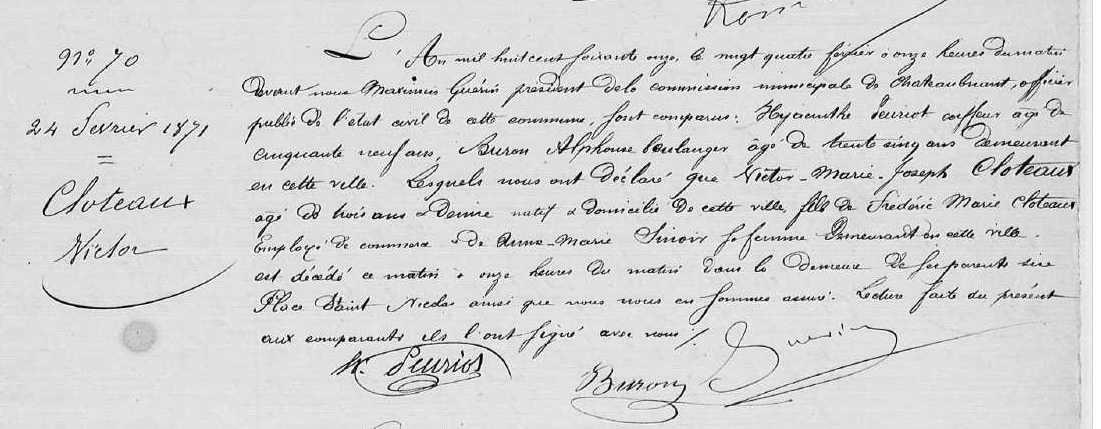 No 70
24 Fevrier 1871
=
Cloteaux
Victor
L'An mil huit cent soixante onze, le vingt quatre fevrier à onze heures du matin
devant nous Maximin Guérin président de la commission municipale de Chateaubriant, officier
public de l'état civil de cette commune, sont comparus: Hyacinthe Peuriot coiffeur âgé de
cinquante neuf ans, Buron Alphonse boulanger âgé de trente cinq ans demeurant
en cette ville. Lesquels nous ont déclaré que Victor-Marie-Joseph Cloteaux
agé de trois ans & demie natif & domicilié de cette ville, fils de Frédéric Marie Cloteaux
Employé de commerce & de Anne-Marie Sinoir sa femme demeurant en cette ville.
est décédé ce matin à onze heures du matin dans la demeure de ses parents sise
Place Saint Nicolas ainsi que nous nous en sommes assuré. Lecture faite du présent
aux comparants ils l'ont signé avec nous ./.
h. Peuriot
Buron
Guérin